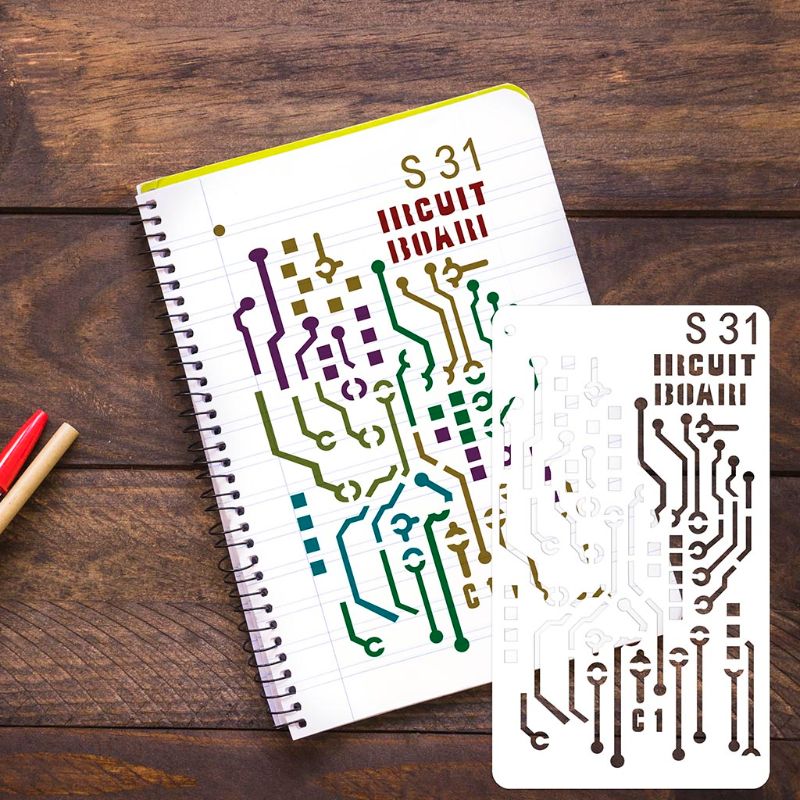 S 31
CIRCUIT
BOARD
C 1
S 31
CIRCUIT
BOARD
C 1